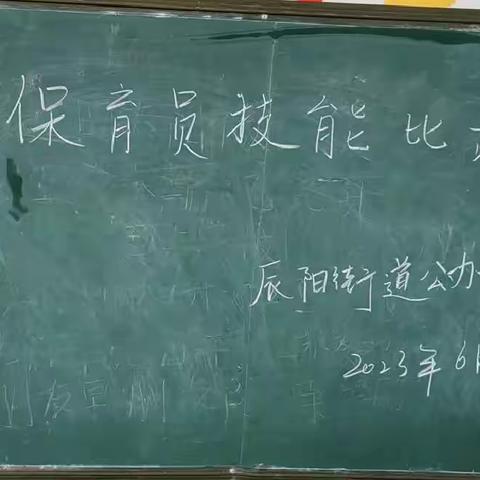 保育员技能比
辰阳街道公办
2023年6月